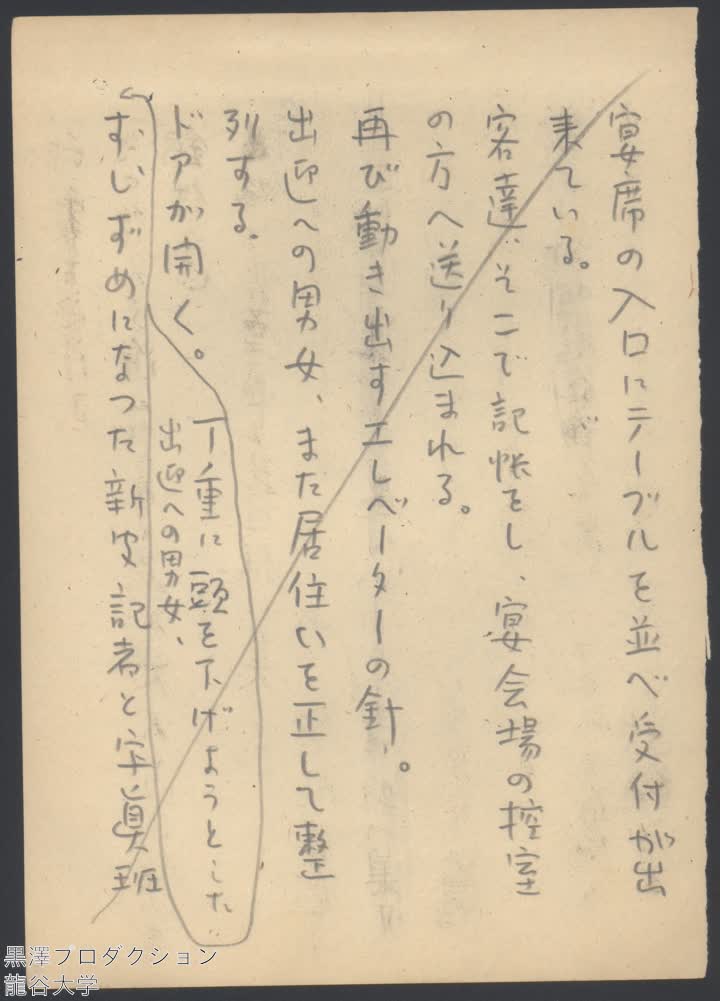 宴席の入口にテーブルを並べ受付が出
来ている。
客達、そこで記帳をし、宴会場の控室
の方へ送り込まれる。
再び動き出すエレベーターの針。
出迎への男女、また居住いを正して整
列する。
ドアが開く。
丁重に頭を下げようとした
出迎への男女、
すしずめになつた新聞記者と写眞班
黒澤プロダクション
龍谷大学